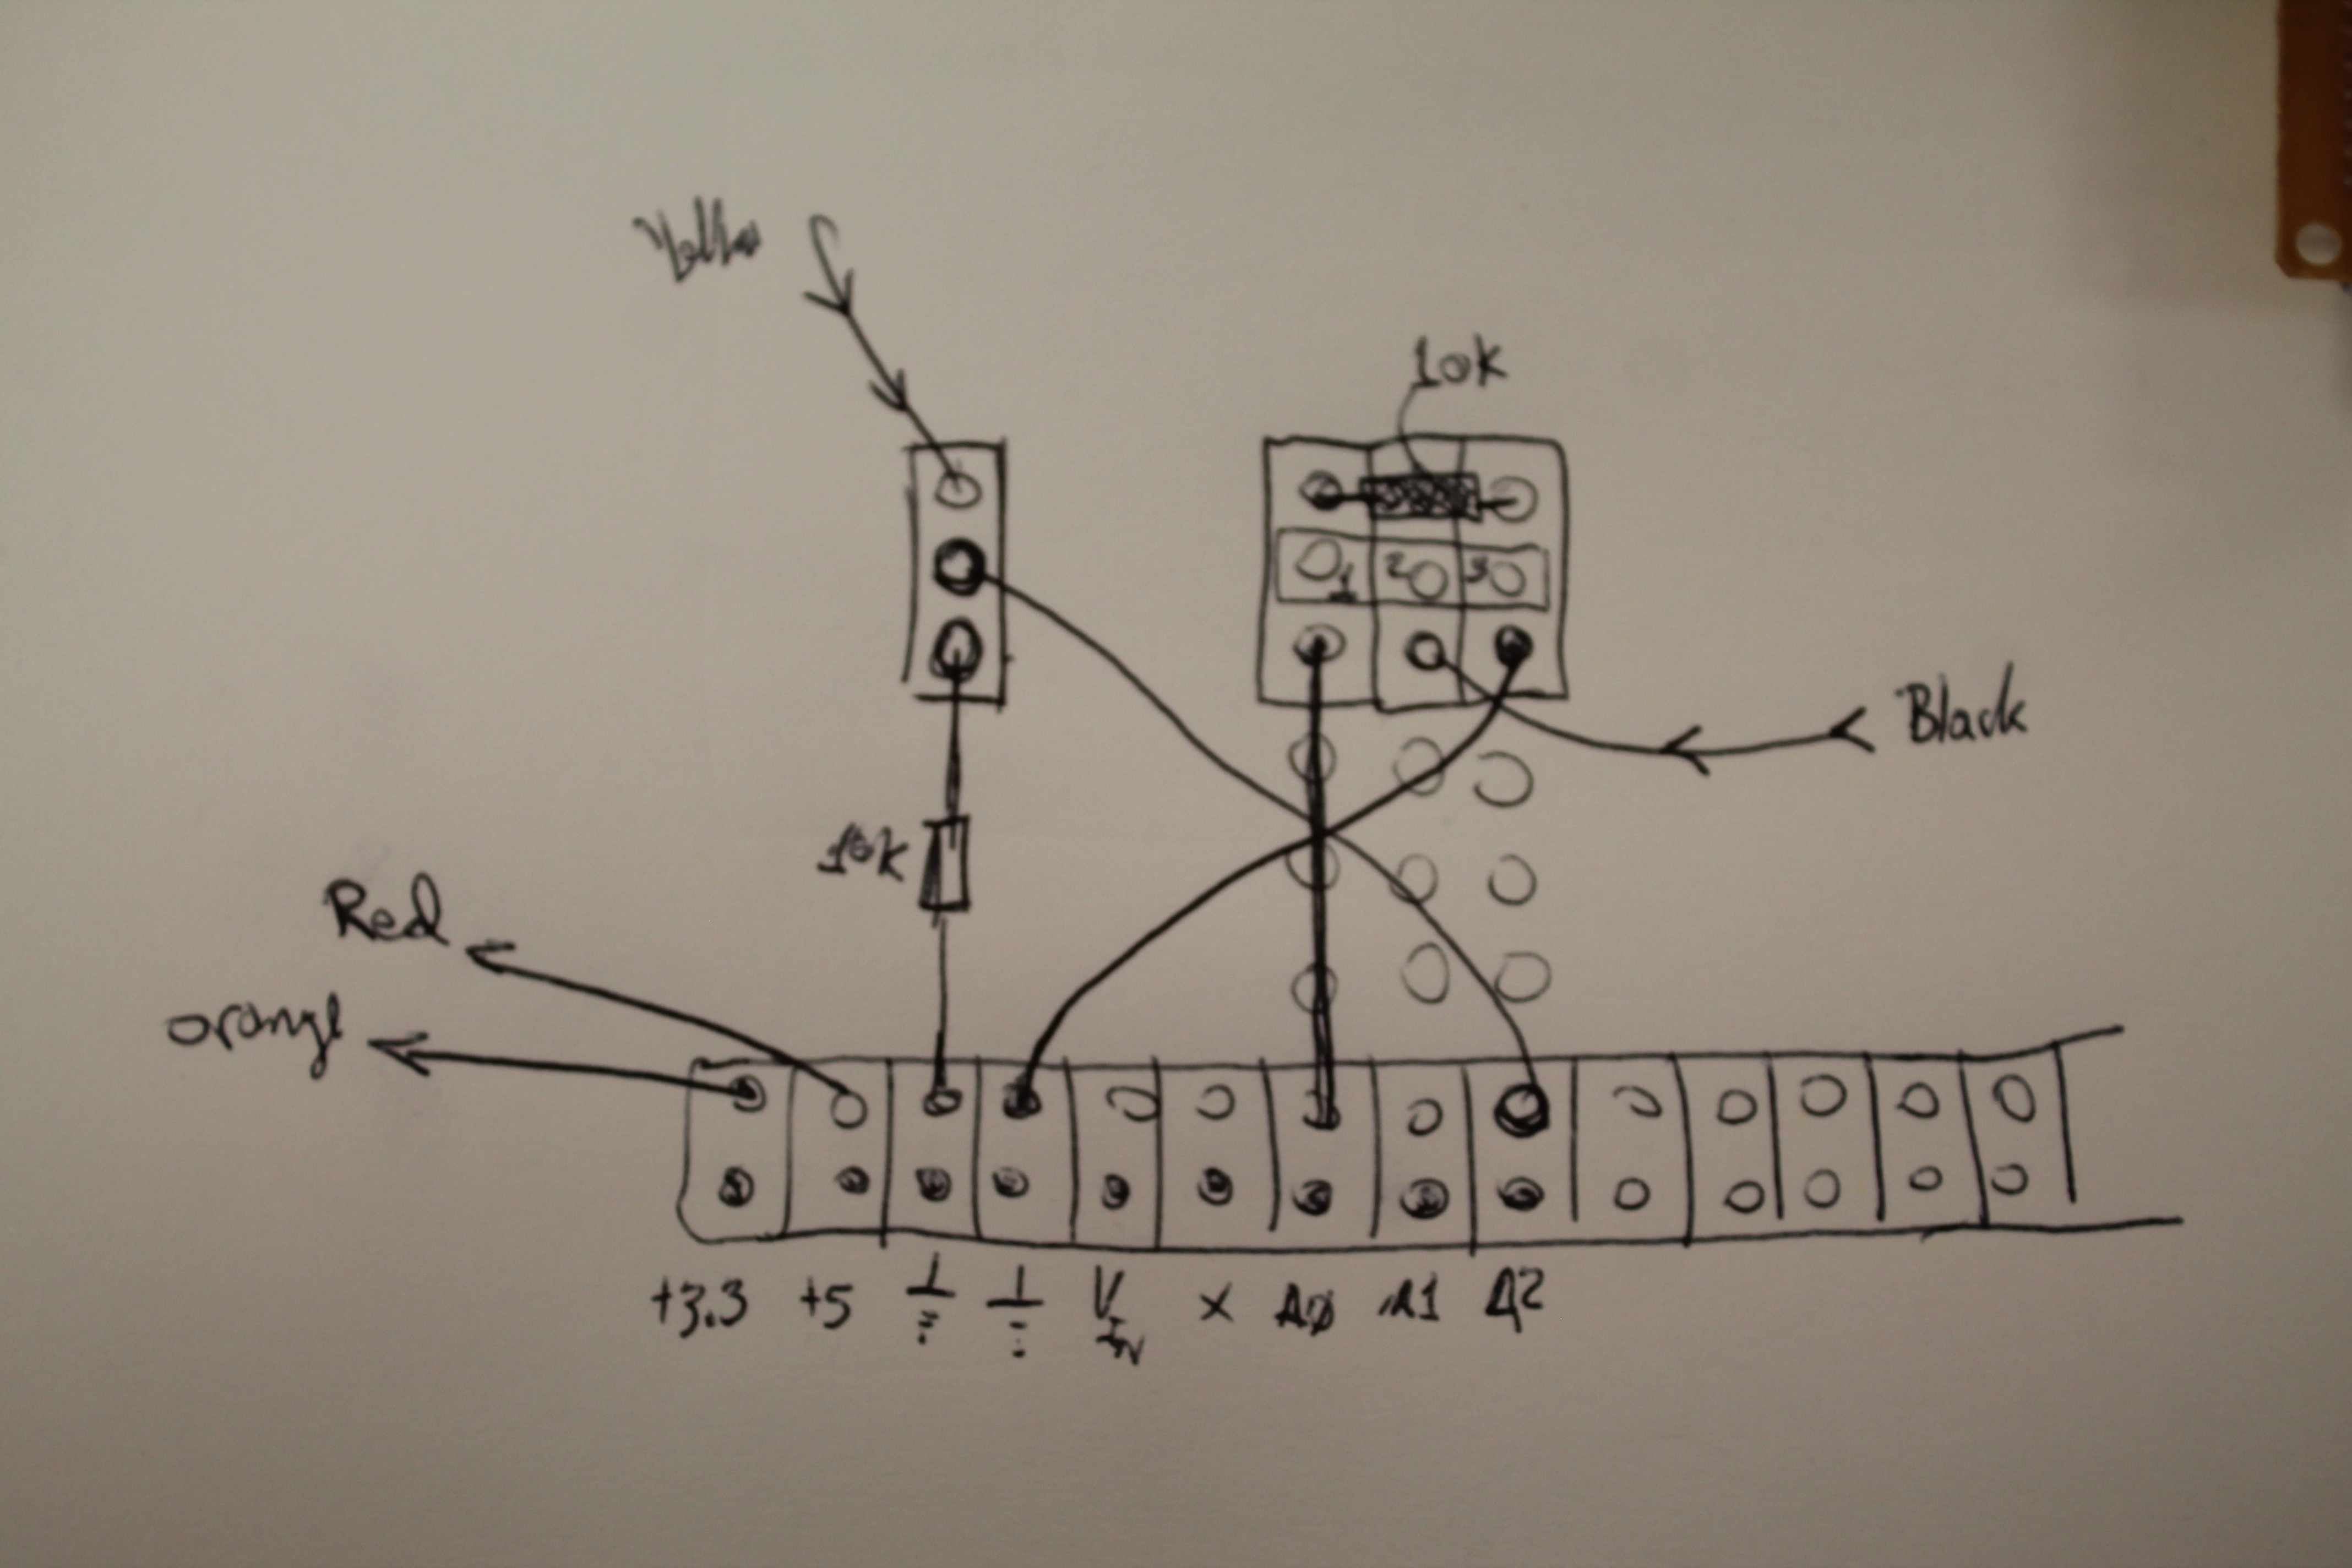 Yellow
10K
1 2 3
Black
10K
Red
orange
+3.3 +5 V IN X A0 A1 A2